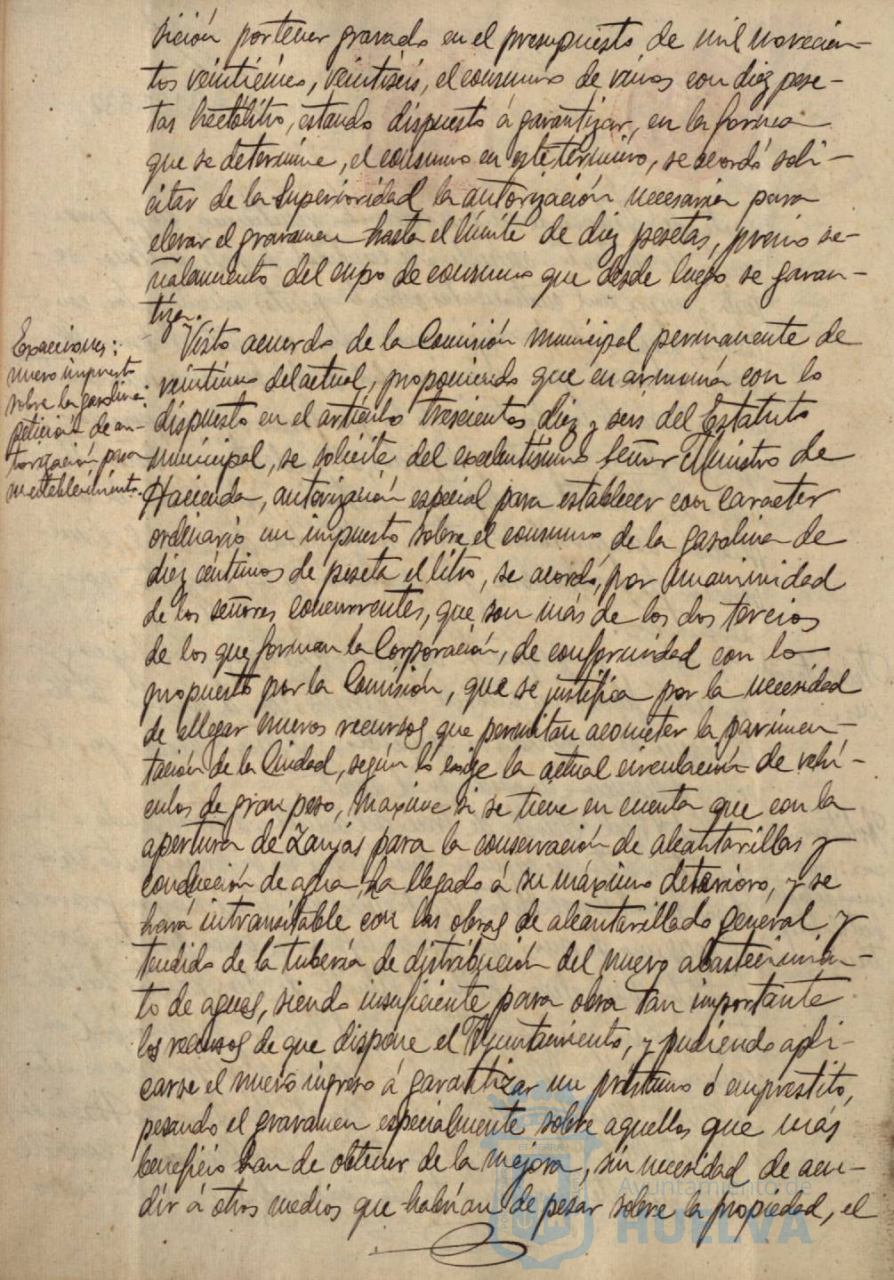 sición por tener gravado en el presupuesto de mil novecien-
tos veinticinco, veintiséis, el consumo de vinos con diez pese-
tas hectólitro, estando dispuesto á garantizar, en la forma
que se determine, el consumo en este término, se acordó soli-
citar de la Superioridad la autorización necesaria para
elevar el gravamen hasta el límite de diez pesetas, previo se-
ñalamiento del cupo de consumo que desde luego se garan-
tiza.
Exacciones:
nuevo impuesto
sobre la gasolina:
petición de au-
torización para
su establecimiento.
Visto acuerdo de la Comisión municipal permanente de
veintiuno del actual, proponiendo que en armonía con lo
dispuesto en el artículo trescientos diez y seis del Estatuto
municipal, se solicite del excelentísimo Señor Ministro de
Hacienda, autorización especial para establecer con caracter
ordinario un impuesto sobre el consumo de la gasolina de
diez céntimos de peseta el litro, se acordó, por unanimidad
de los señores concurrentes, que son más de los dos tercios
de los que forman la Corporación, de conformidad con lo
propuesto por la Comisión, que se justifica por la necesidad
de allegar nuevos recursos que permitan acometer la pavimen-
tación de la Ciudad, según lo exige la actual circulación de vehí-
culos de gran peso, máxime si se tiene en cuenta que con la
apertura de zanjas para la conservación de alcantarillas y
conducción de agua, ha llegado á su máximo deterioro, y se
hará intransitable con las obras de alcantarillado general y
tendido de la tubería de distribución del nuevo abastecimien-
to de aguas, siendo insuficiente para obra tan importante
los recursos de que dispone el Ayuntamiento, y pudiendo apli-
carse el nuevo ingreso á garantizar un préstamo ó empréstito,
pesando el gravamen especialmente sobre aquellos que más
beneficio han de obtener de la mejora, sin necesidad de acu-
dir á otros medios que habrían de pesar sobre la propiedad, el
Ayuntamiento de
HUELVA